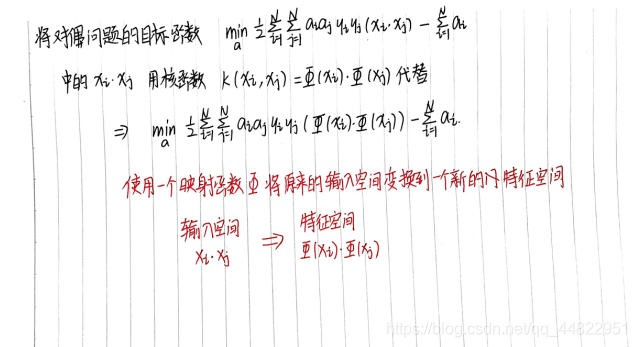 将对偶问题的目标函数 min a 1/2 N Σ i=1 N Σ j=1 aiaj yiyj (xi·xj) − N Σ i=1 ai
中的 xi·xj 用核函数 K(xi,xj) = Φ(xi)·Φ(xj) 代替
⇒ min a 1/2 N Σ i=1 N Σ j=1 aiaj yiyj (Φ(xi)·Φ(xj)) − N Σ i=1 ai.
使用一个映射函数Φ将原来的输入空间变换到一个新的特征空间
输入空间 ⇒ 特征空间
xi·xj Φ(xi)·Φ(xj)
https://blog.csdn.net/qq_44822951